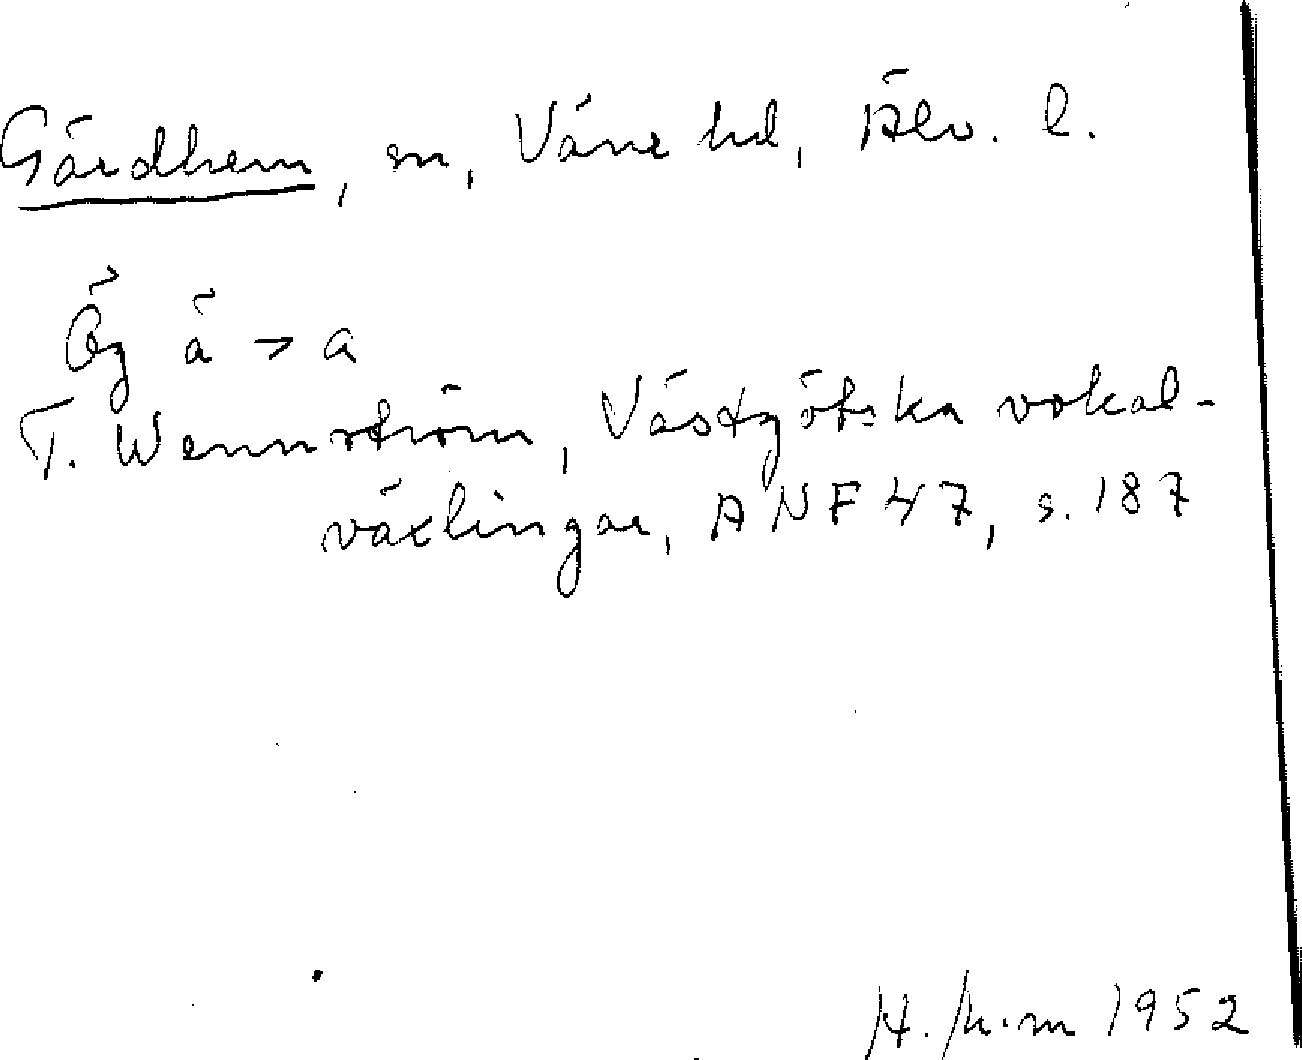 Gärdhem, sn, Väne hd, Älv. l.
Övg ä > a
T. Wennström, Västgötska vokal-
växlingar, ANF 47, s. 187
1952